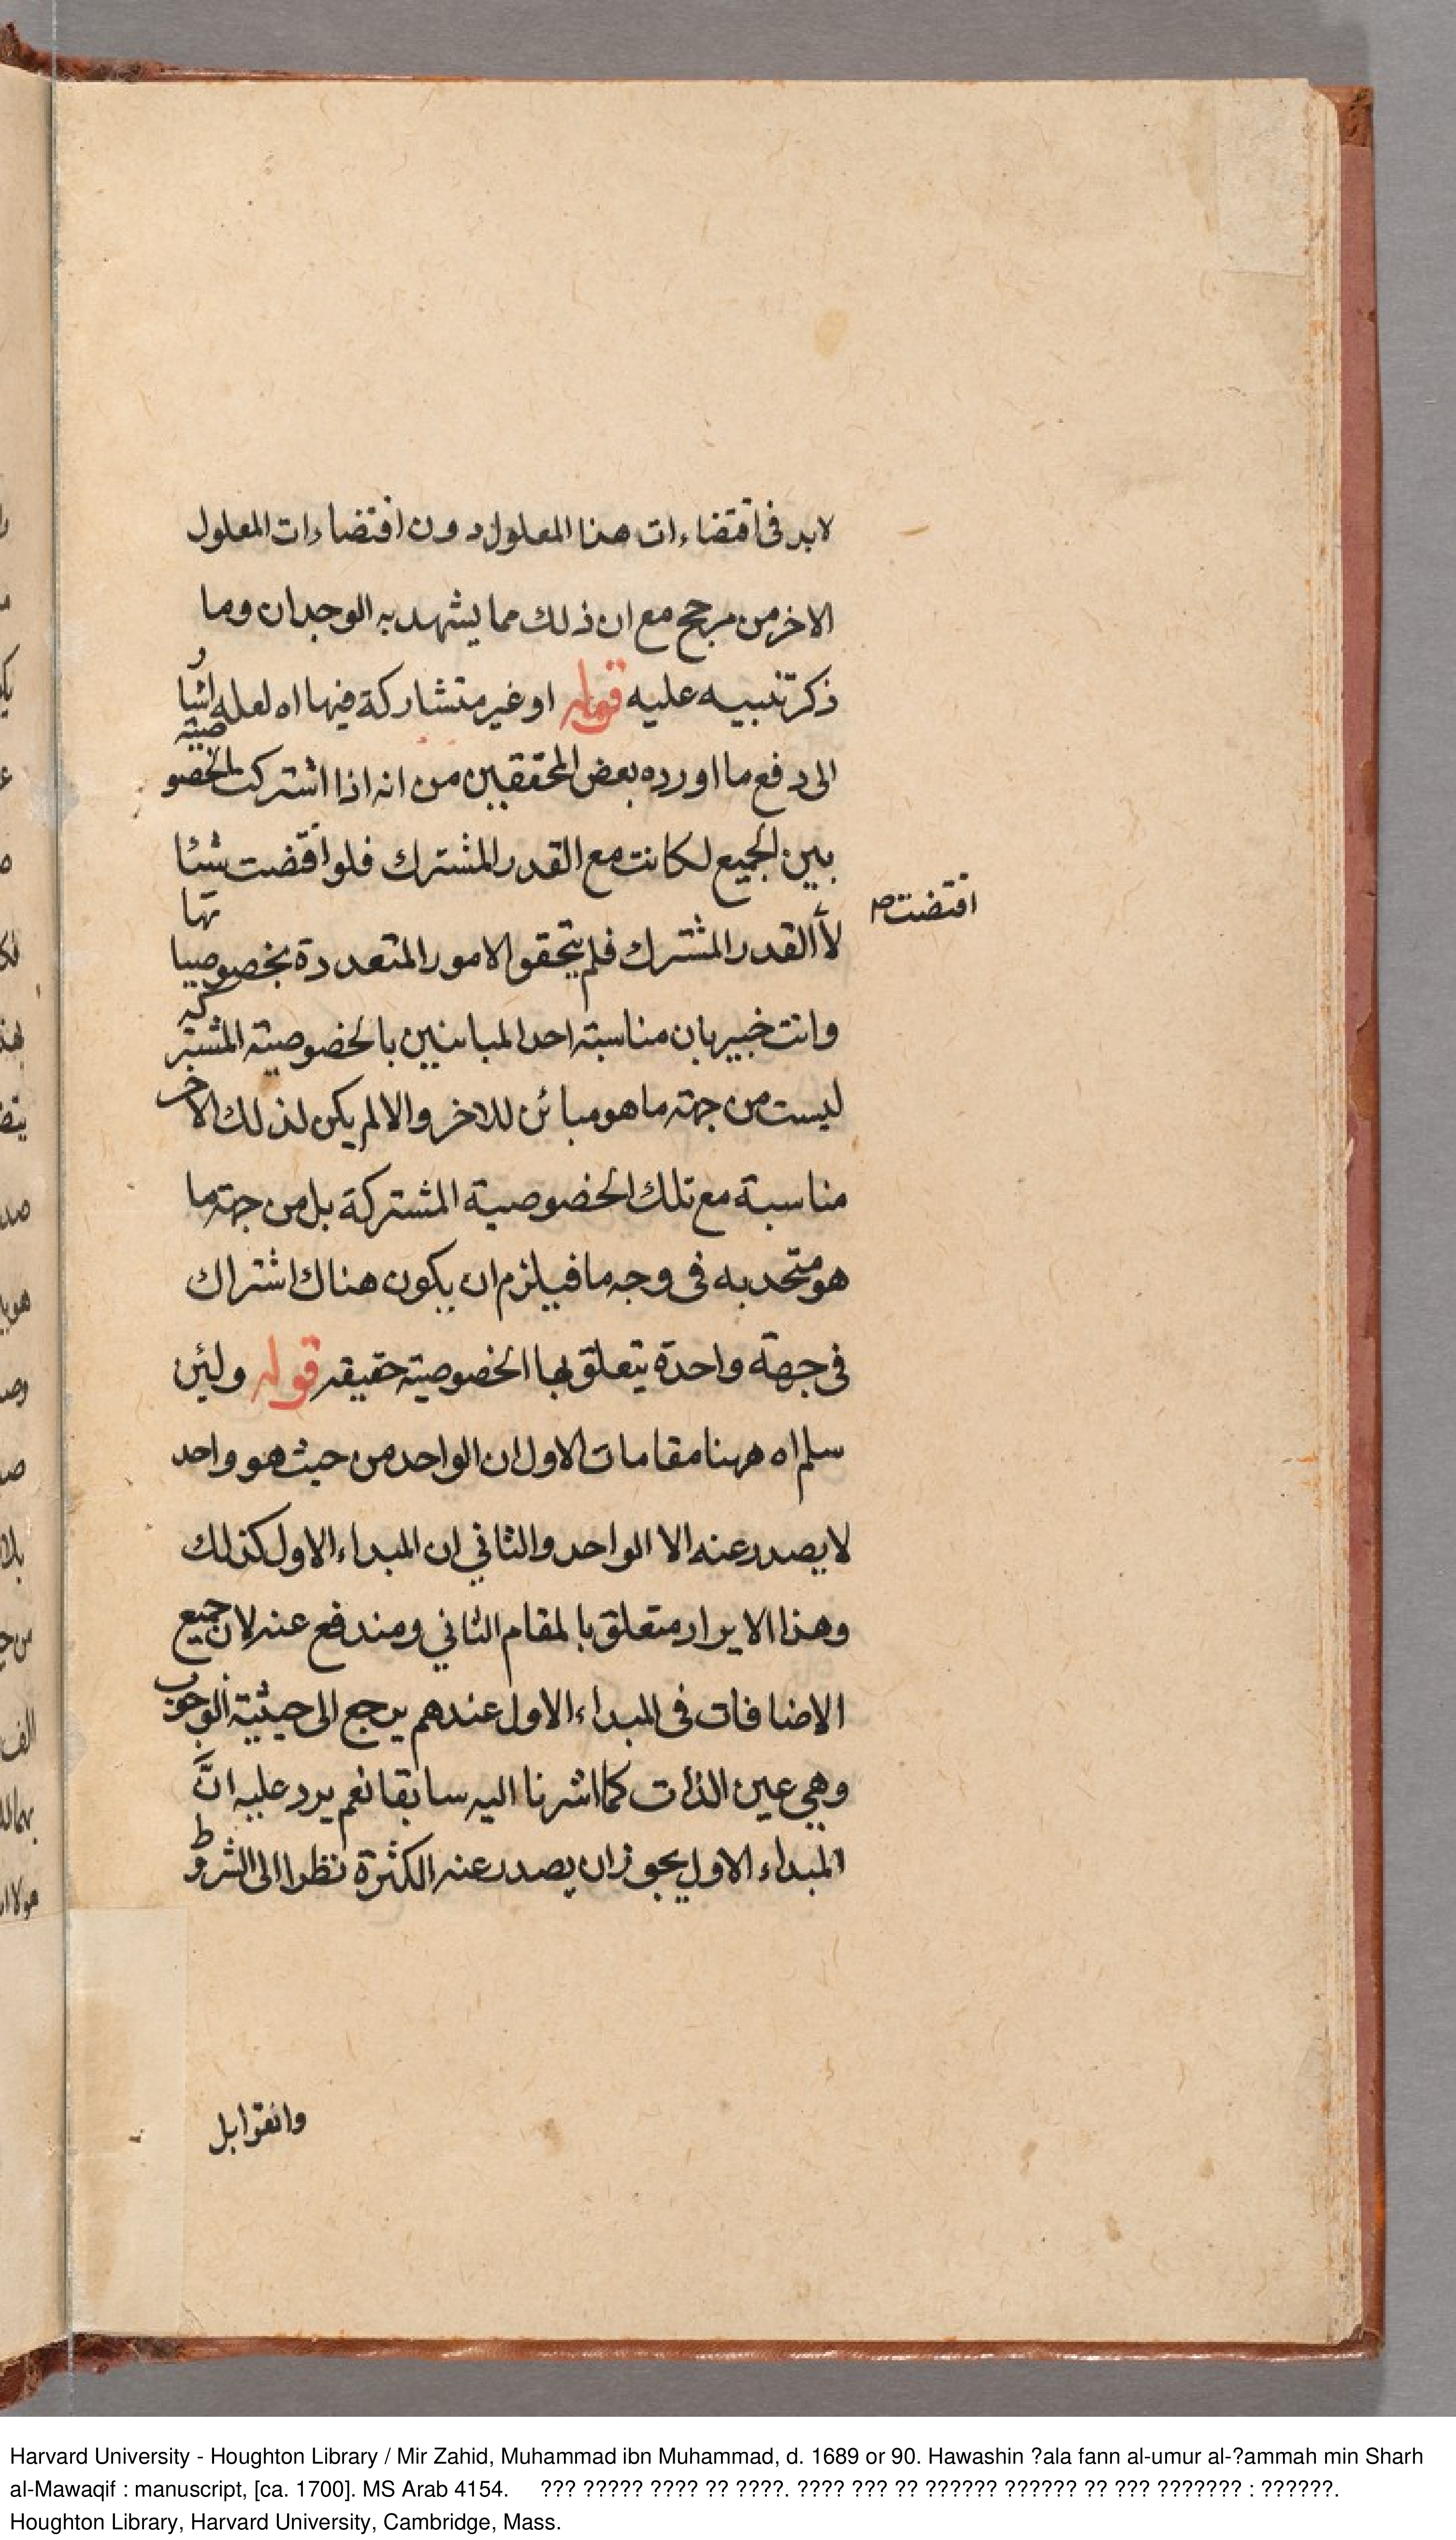 لابد فى اقتضاءات هذا المعلول دون اقتضاءات المعلول
الاخر من مرجح مع ان ذلك مما يشهد به الوجدان وما
ذكر تنبيه عليه قوله او غير متشاركة فيها اه لعله اشار
الى دفع ما اورده بعض المحققين من انه اذا اشتركت الخصوصية
بين الجميع لكانت مع القدر المشترك فلو اقتضت شيئا
لا القدر المشترك فلم يتحقق الامور المتعددة بخصوصياتها
اقتضت
وانت خبير بان مناسبة احد المباينين بالخصوصية المشتركة
ليست من جهة ما هو مبائن للاخر والا لم يكن لذلك الاخر
مناسبة مع تلك الخصوصية المشتركة بل من جهة ما
هو متحد به فى وجه ما فيلزم ان يكون هناك اشتراك
فى جهة واحدة يتعلق بها الخصوصية حقيقة قوله ولئن
سلم اه ههنا مقامات الاول ان الواحد من حيث هو واحد
لا يصدر عنه الا الواحد والثاني ان المبداء الاول كذلك
وهذا الايراد متعلق بالمقام الثاني ومندفع عنه لان جميع
الاضافات فى المبداء الاول عندهم يرجع الى حيثية الوجوب
وهي عين الذات كما اشرنا اليه سابقا نعم يرد عليه انَّ
المبداء الاول يجوز ان يصدر عنه الكثرة نظرا الى الشروط
والقوابل
Harvard University - Houghton Library / Mir Zahid, Muhammad ibn Muhammad, d. 1689 or 90. Hawashin ?ala fann al-umur al-?ammah min Sharh
al-Mawaqif : manuscript, [ca. 1700]. MS Arab 4154. ??? ????? ???? ?? ????. ???? ??? ?? ?????? ?????? ?? ??? ??????? : ??????.
Houghton Library, Harvard University, Cambridge, Mass.